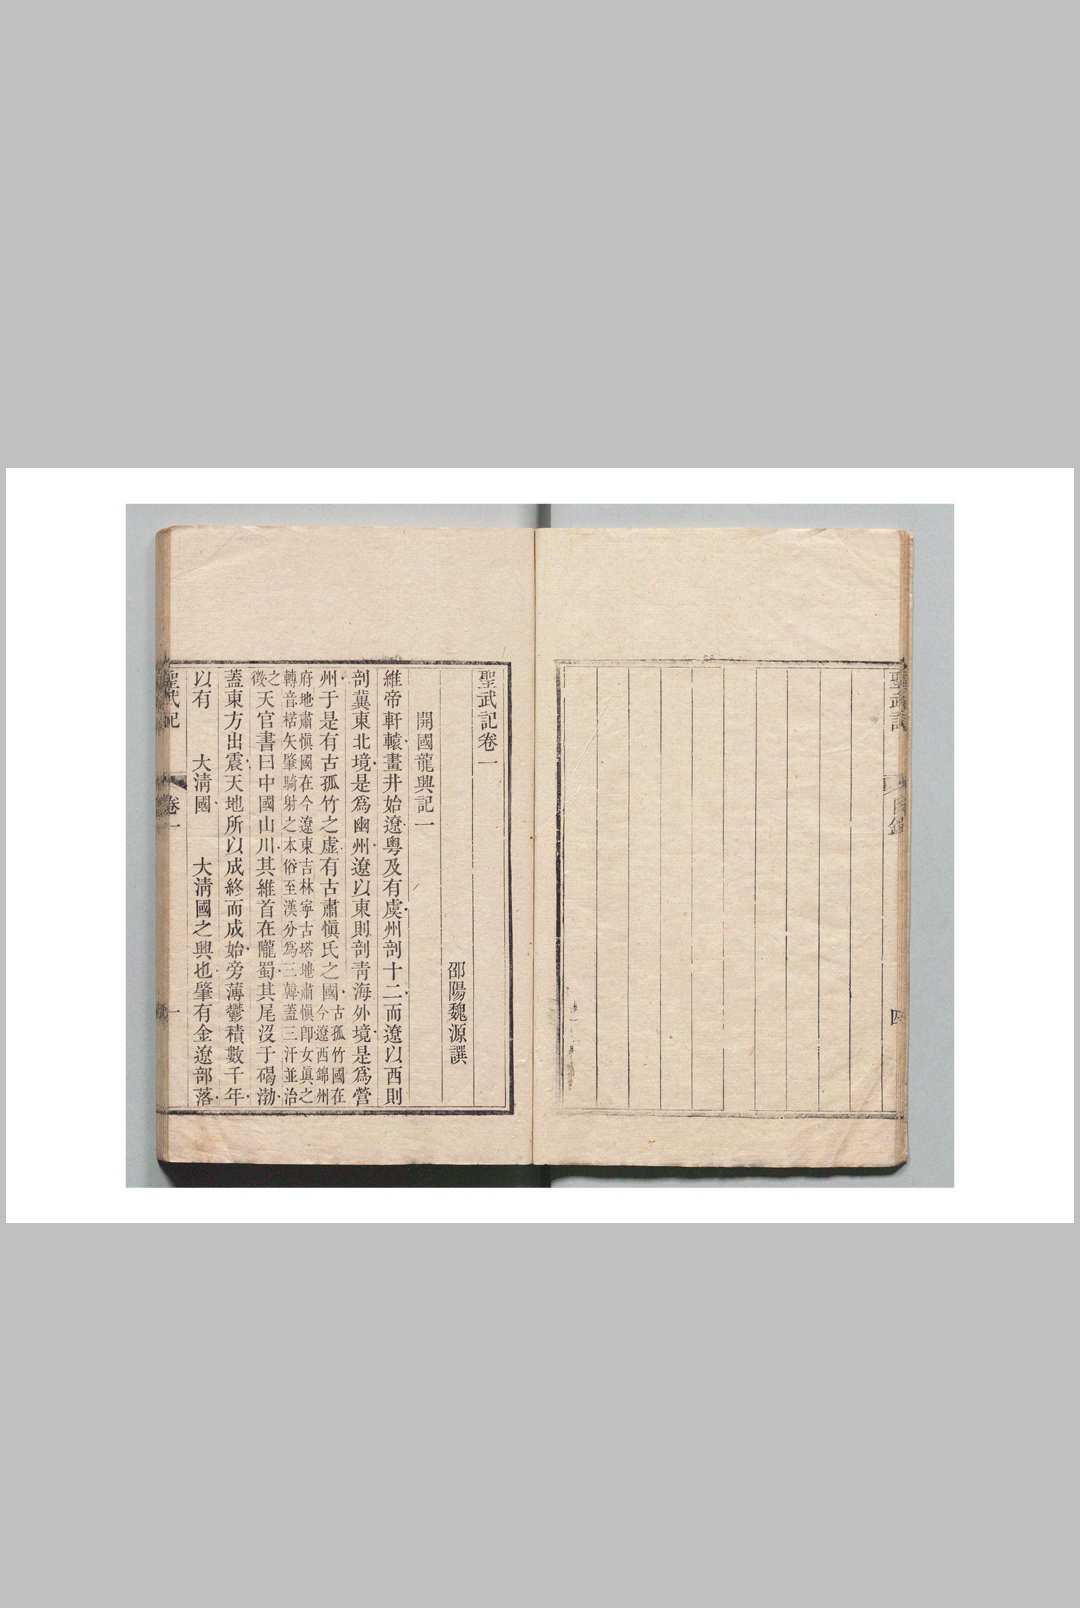 聖武記
目錄
四
聖武記卷一
邵陽魏源譔
開國龍興記一
維帝軒轅畫井始遼粵及有虞州剖十二而遼以西則
剖冀東北境是爲幽州遼以東則剖靑海外境是爲營
州于是有古孤竹之虛有古肅愼氏之國古孤竹國在今遼西錦州
府地肅愼國在今遼東吉林寧古塔地肅愼卽女眞之
轉音楛矢肇騎射之本俗至漢分爲三韓蓋三汗並治
之徵天官書曰中國山川其維首在隴蜀其尾沒于碣渤
蓋東方出震天地所以成終而成始旁薄鬱積數千年
以有 大淸國 大淸國之興也肇有金遼部落
聖武記
卷一
一